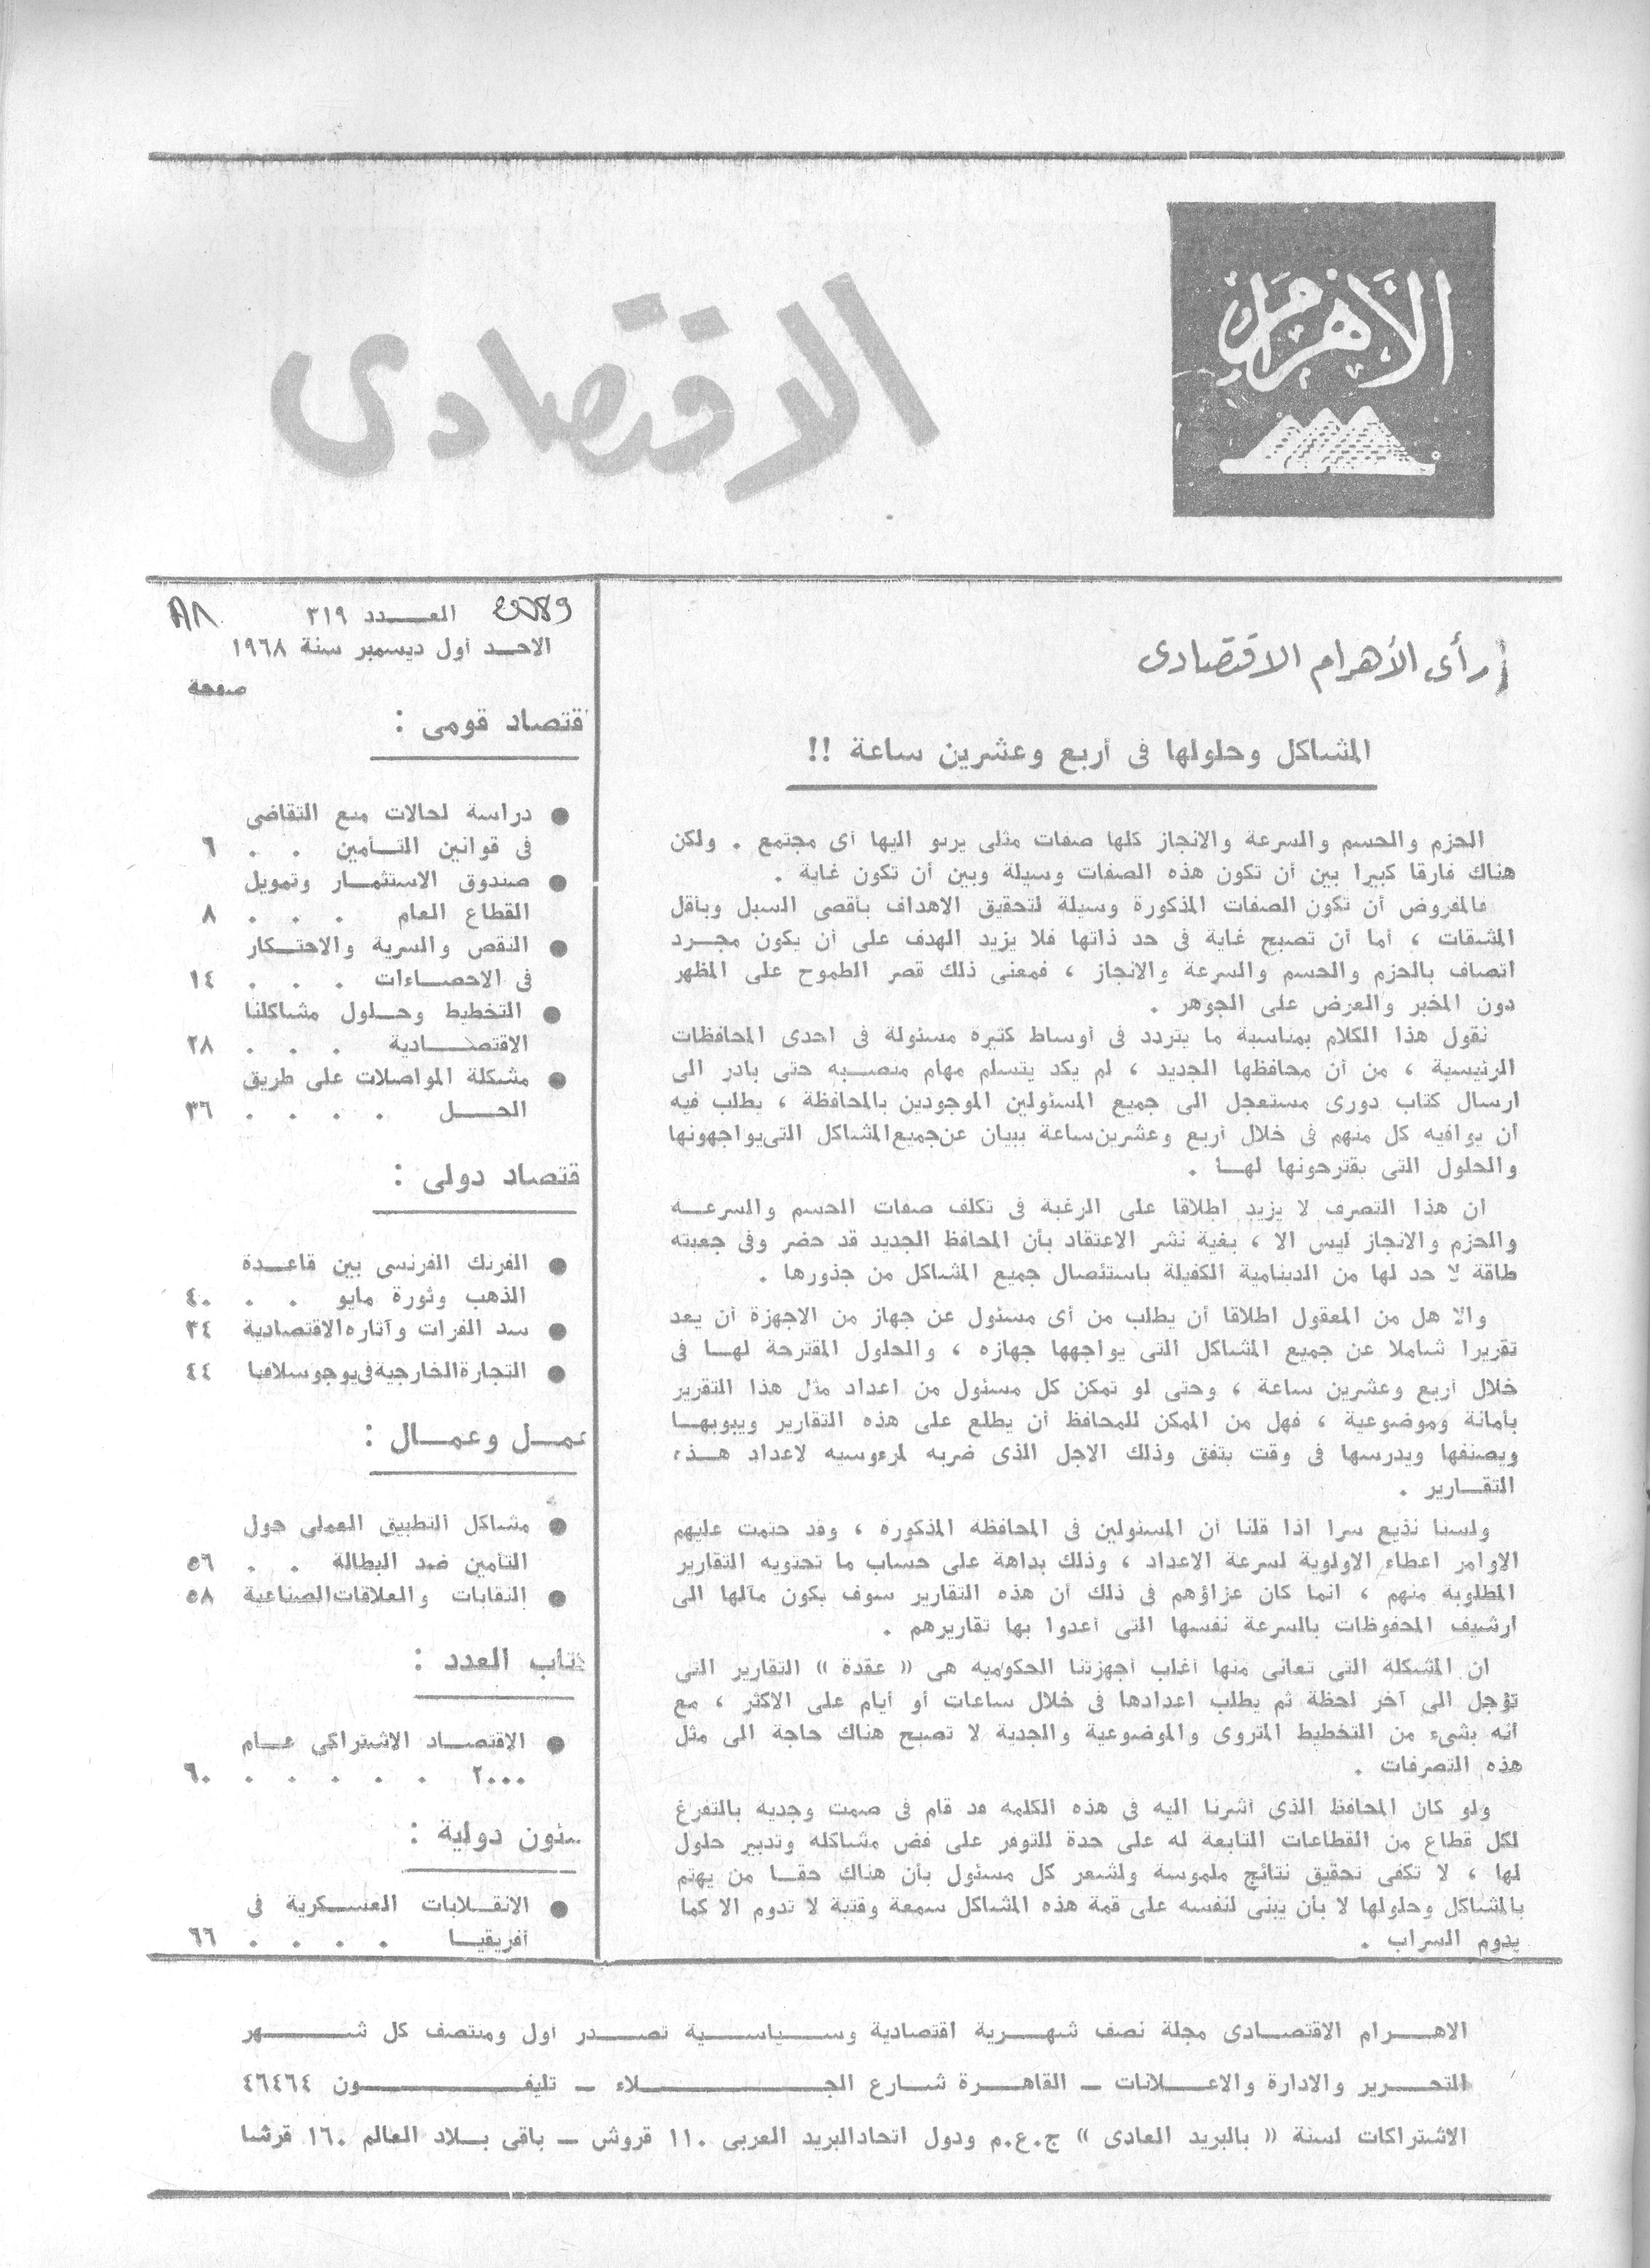 الأهرام
الاقتصادى
العـــدد ٣١٩
الاحــد أول ديسمبر سنة ١٩٦٨
صفحة
قتصاد قومى :
● دراسة لحالات منع التقاضى
فى قوانين التــأمين . . ٦
● صندوق الاستثمــار وتمويل
القطاع العام . . . ٨
● النقص والسرية والاحتـكار
فى الاحصــاءات . . . ١٤
● التخطيط وحــلول مشاكلنا
الاقتصــــادية . . . ٢٨
● مشكلة المواصلات على طريق
الحـــل . . . . ٣٦
قتصاد دولى :
● الفرنك الفرنسى بين قاعــدة
الذهب وثورة مايو . . ٤٠
● سد الفرات وآثاره الاقتصادية ٣٤
● التجارة الخارجية فى يوجوسلافيا ٤٤
عمــل وعمــال :
● مشاكل التطبيق العملى حول
التأمين ضد البطالة . . ٥٦
● النقابات والعلاقات الصناعية ٥٨
كتاب العدد :
● الاقتصــاد الاشتراكى عــام
٢٠٠٠ . . . . . ٦٠
ـئون دولية :
● الانقــلابات العســكرية فى
أفريقيــا . . . . ٦٦
رأى الأهرام الاقتصادى
المشاكل وحلولها فى أربع وعشرين ساعة !!
الحزم والحسم والسرعة والانجاز كلها صفات مثلى يرنو اليها أى مجتمع . ولكن
هناك فارقا كبيرا بين أن تكون هذه الصفات وسيلة وبين أن تكون غاية .
فالمفروض أن تكون الصفات المذكورة وسيلة لتحقيق الاهداف بأقصى السبل وبأقل
المشقات ، أما أن تصبح غاية فى حد ذاتها فلا يزيد الهدف على أن يكون مجــرد
اتصاف بالحزم والحسم والسرعة والانجاز ، فمعنى ذلك قصر الطموح على المظهر
دون المخبر والعرض على الجوهر .
نقول هذا الكلام بمناسبة ما يتردد فى أوساط كثيره مسئولة فى احدى المحافظات
الرئيسية ، من أن محافظها الجديد ، لم يكد يتسلم مهام منصــبه حتى بادر الى
ارسال كتاب دورى مستعجل الى جميع المسئولين الموجودين بالمحافظة ، يطلب فيه
أن يوافيه كل منهم فى خلال أربع وعشرين ساعة ببيان عن جميع المشاكل التى يواجهونها
والحلول التى يقترحونها لهــا .
ان هذا التصرف لا يزيد اطلاقا على الرغبة فى تكلف صفات الحسم والسرعــه
والحزم والانجاز ليس الا ، بغية نشر الاعتقاد بأن المحافظ الجديد قد حضر وفى جعبته
طاقة لا حد لها من الدينامية الكفيلة باستئصال جميع المشاكل من جذورها .
والا هل من المعقول اطلاقا أن يطلب من أى مسئول عن جهاز من الاجهزة أن يعد
تقريرا شاملا عن جميع المشاكل التى يواجهها جهازه ، والحلول المقترحة لهــا فى
خلال أربع وعشرين ساعة ، وحتى لو تمكن كل مسئول من اعداد مثل هذا التقرير
بأمانة وموضوعية ، فهل من الممكن للمحافظ أن يطلع على هذه التقارير ويبوبهــا
ويصنفها ويدرسها فى وقت يتفق وذلك الاجل الذى ضربه لمرءوسيه لاعداد هــذه
التقــارير .
ولسنا نذيع سرا اذا قلنا أن المسئولين فى المحافظه المذكورة ، وقد حتمت عليهم
الاوامر اعطاء الاولوية لسرعة الاعداد ، وذلك بداهة على حساب ما تحتويه التقارير
المطلوبة منهم ، انما كان عزاؤهم فى ذلك أن هذه التقارير سوف يكون مآلها الى
ارشيف المحفوظات بالسرعة نفسها التى أعدوا بها تقاريرهم .
ان المشكلة التى تعانى منها أغلب أجهزتنا الحكوميه هى « عقدة » التقارير التى
تؤجل الى آخر لحظة ثم يطلب اعدادها فى خلال ساعات أو أيام على الاكثر ، مع
انه بشىء من التخطيط المتروى والموضوعية والجدية لا تصبح هناك حاجة الى مثل
هذه التصرفات .
ولو كان المحافظ الذى أشرنا اليه فى هذه الكلمه قد قام فى صمت وجديه بالتفرغ
لكل قطاع من القطاعات التابعة له على حدة للتوفر على فض مشاكله وتدبير حلول
لها ، لا تكفى تحقيق نتائج ملموسة ولشعر كل مسئول بأن هناك حقــا من يهتم
بالمشاكل وحلولها لا بأن يبنى لنفسه على قمة هذه المشاكل سمعة وقتية لا تدوم الا كما
يدوم السراب .
الاهــرام الاقتصــادى مجلة نصف شهــرية اقتصادية وســياســية تصــدر أول ومنتصف كل شــهر
التحــرير والادارة والاعــلانات ــ القاهــرة شــارع الجــــلاء ــ تليفــــون ٤٦٤٦٤
الاشتراكات لسنة « بالبريد العادى » ج.ع.م ودول اتحاد البريد العربى ١١٠ قروش ــ باقى بــلاد العالم ١٦٠ قرشا